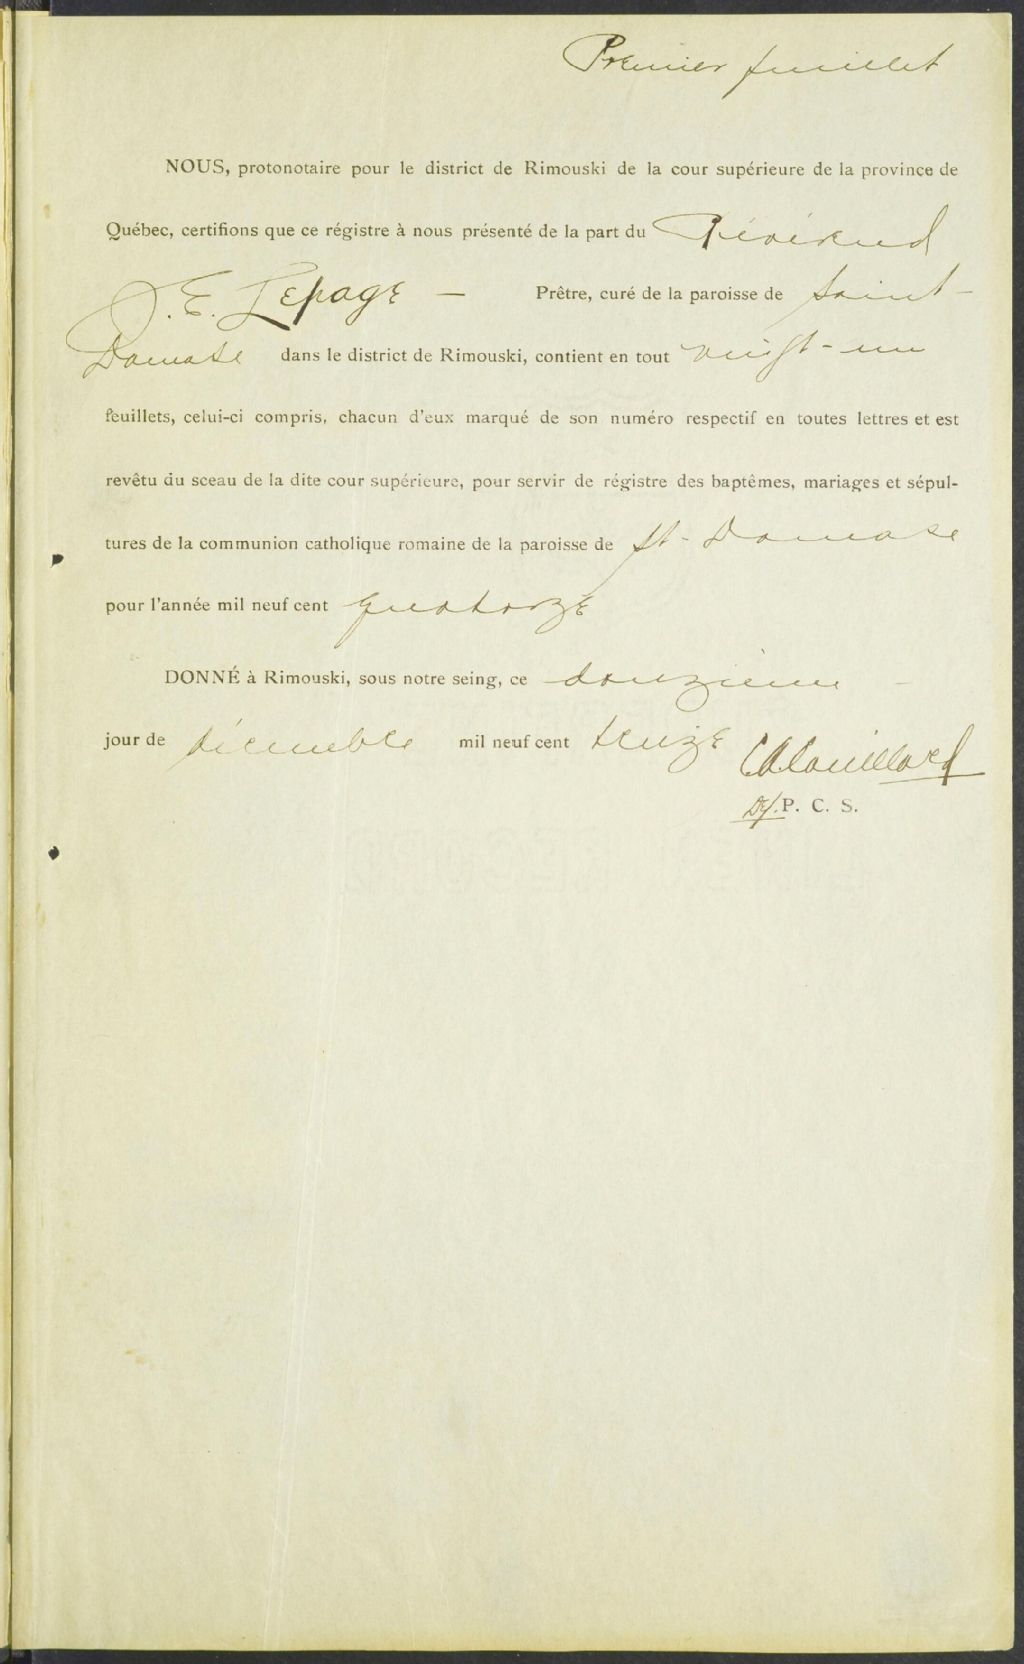 Premier feuillet
NOUS, protonotaire pour le district de Rimouski de la cour supérieure de la province de
Québec, certifions que ce régistre à nous présenté de la part du Révérend
J. E. Lepage — Prêtre, curé de la paroisse de Saint-
Damase dans le district de Rimouski, contient en tout vingt-un
feuillets, celui-ci compris, chacun d'eux marqué de son numéro respectif en toutes lettres et est
revêtu du sceau de la dite cour supérieure, pour servir de régistre des baptêmes, mariages et sépul-
tures de la communion catholique romaine de la paroisse de St-Damase
pour l'année mil neuf cent quatorze
DONNÉ à Rimouski, sous notre seing, ce douzième
jour de décembre mil neuf cent treize
Dép. P. C. S.